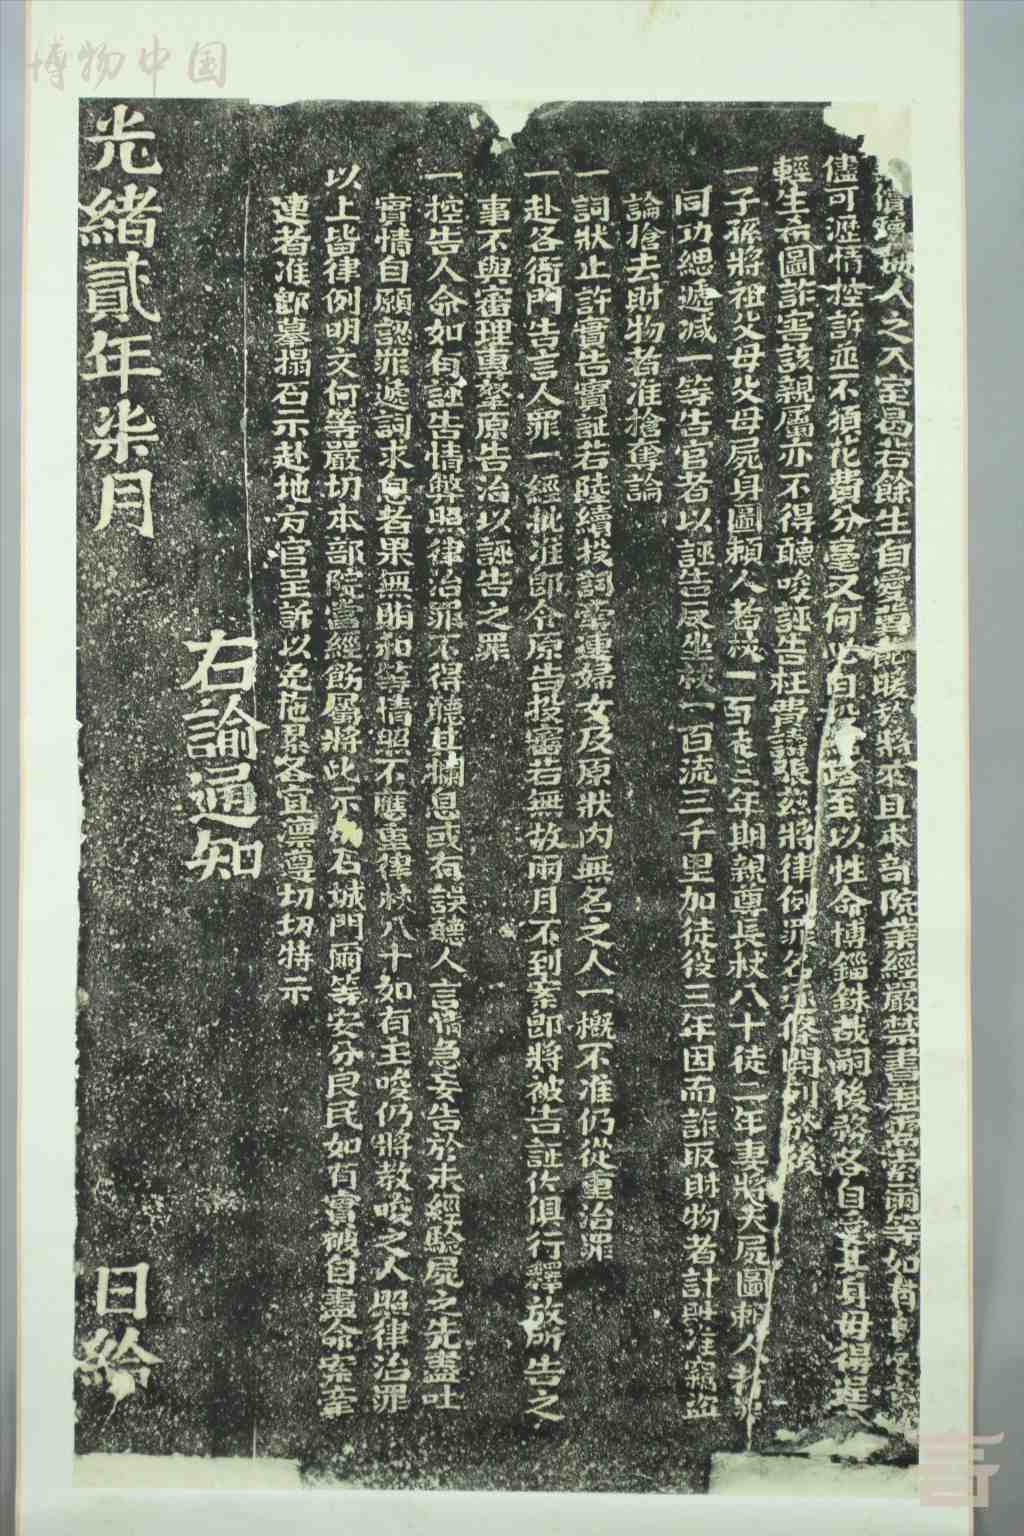 博物中国
人之入室曷若餘生自愛
於將來且本部院業經嚴禁書差需索爾等如有
儘可瀝情控訴並不須花費分毫又何必自
路至以性命博錙銖哉嗣後務各自愛其身毋得逞
輕生希圖詐害該親屬亦不得聽唆誣告枉費譸張茲將律例罪名逐條開列於後
一子孫將祖父母父母屍身圖賴人者杖一百徒三年期親尊長杖八十徒二年妻將夫屍圖賴人者罪
同功緦遞減一等告官者以誣告反坐杖一百流三千里加徒役三年因而詐取財物者計贓准竊盜
論搶去財物者准搶奪論
一詞狀止許實告實証若陸續投詞牽連婦女及原狀內無名之人一概不准仍從重治罪
一赴各衙門告言人罪一經批准卽令原告投審若無故兩月不到案卽將被告証佐俱行釋放所告之
事不與審理專拏原告治以誣告之罪
一控告人命如有誣告情弊照律治罪不得聽其攔息或有誤聽人言情急妄告於未經驗屍之先盡吐
實情自願認罪遞詞求息者果無賄和等情照不應重律杖八十如有主唆仍將教唆之人照律治罪
以上皆律例明文何等嚴切本部院當經飭屬將此示
石城門爾等安分良民如有實被自盡命案牽
連者准卽摹搨石示赴地方官呈訴以免拖累各宜凜遵切切特示
右諭通知
光緒貳年柒月　日給